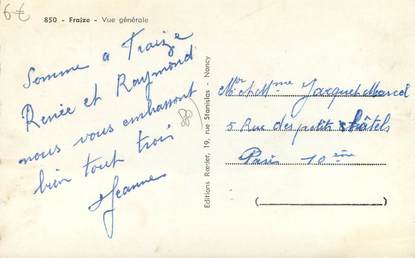 6€
850 - Fraize - Vue générale
Somme a Fraize
Renée et Raymond
nous vous embrassont
bien tout trois
Jeanne
Editions Rœder, 19, rue Stanislas - Nancy
Mr et Mme Jacquet Marcel
5 Rue des petits hôtels
Paris 10 ème